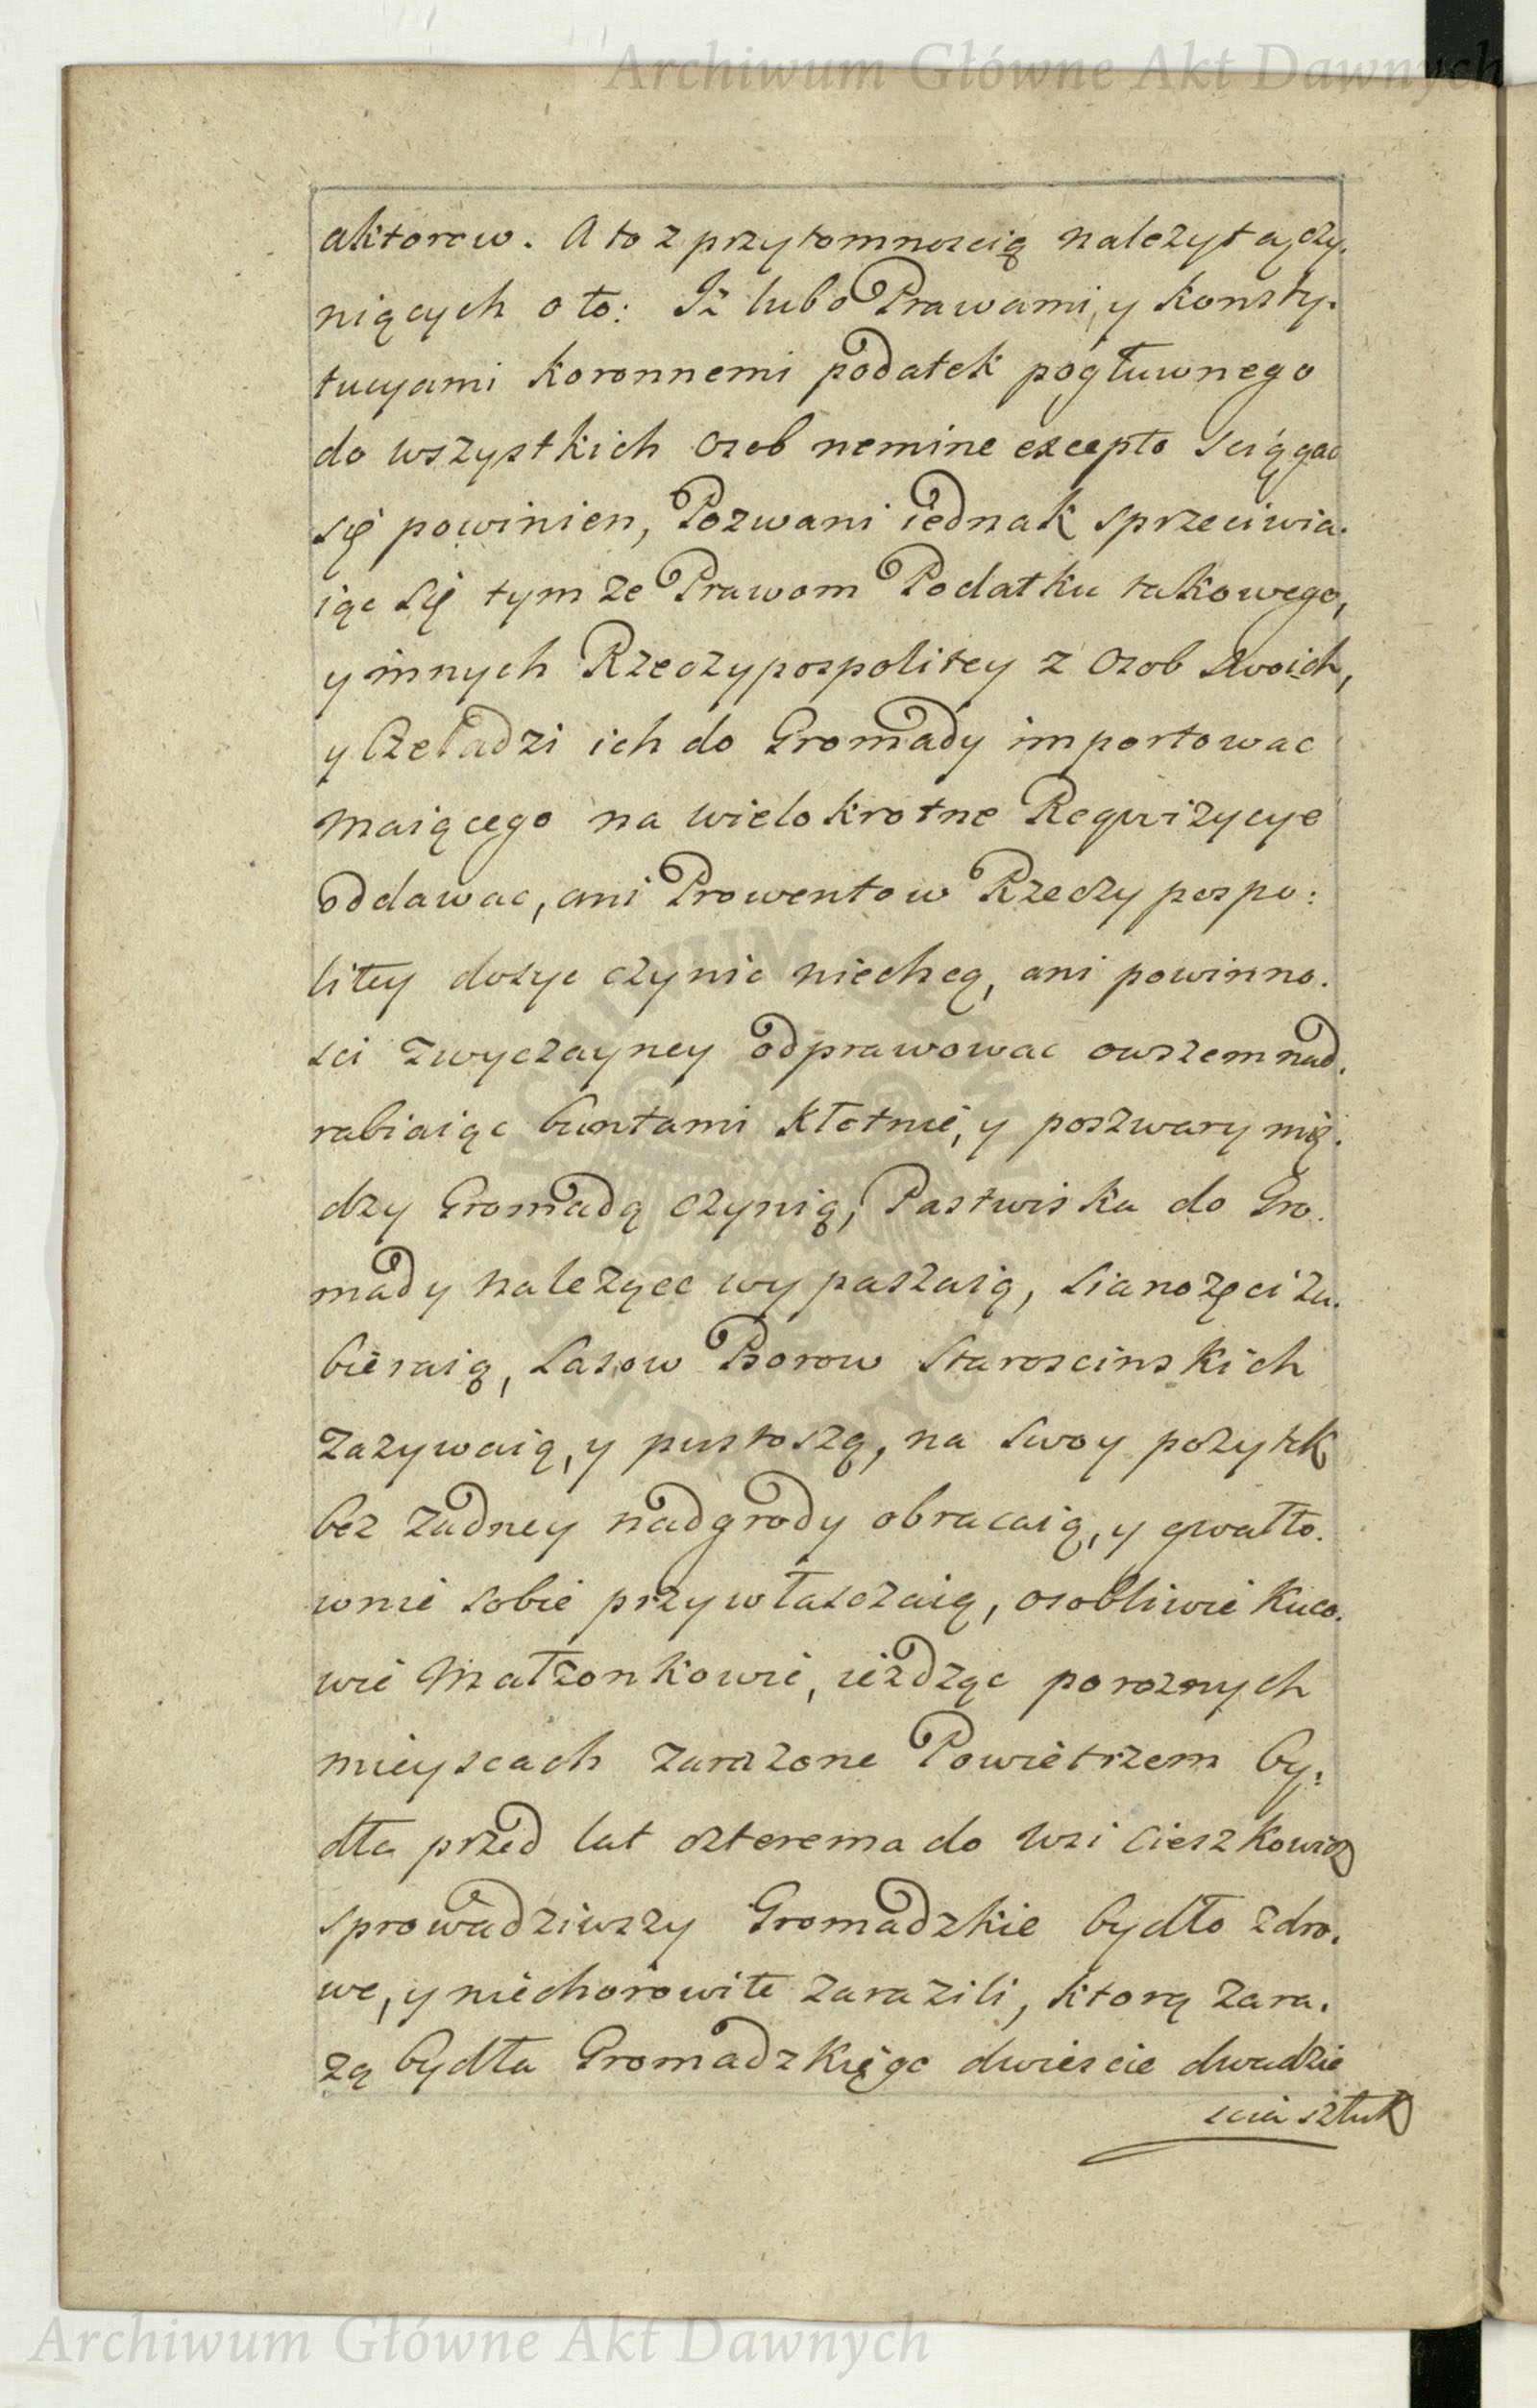 Archiwum Główne Akt Dawnych
aktorow. A to z przytomnoscią należytą czy.
niących o to: Iż lubo Prawami, y Konsty.
tucyami koronnemi podatek pogłuwnego
do wszystkich osob nemine excepto sciągac
się powinien, Pozwani iednak sprzeciwia.
iąc się tymze Prawom Podatku takowego,
y innych Rzeczypospolitey z osob swoich,
y Czeladzi ich do Gromady importowac
maiącego na wielokrotne Reqwizycye
oddawac, ani Prowentow Rzeczy pospo:
litey dosyc czynic niechcą, ani powinno.
sci zwyczayney odprawowac owszem nad.
rabiaiąc buntami kłotnie, y poszwary mię.
dzy Gromadą czynią, Pastwiska do Gro.
mady nalezące wypaszaią, sianozęci za.
bieraią, Lasow Borow Staroscinskich
zazywaią, y pustoszą, na swoy pozytek
bez zadney nadgrody obracaią, y gwałto.
wnie sobie przywłaszczaią, osobliwie Kuco.
wie Małzonkowie, iezdząc po roznych
mieyscach zarazone Powietrzem by.
dła przed lat czterema do wsi Cieszkowic
sprowadziwszy Gromadzkie bydło zdro.
we, y niechorowite zarazili, ktorą zara.
zą bydła Gromadzkięgo dwiescie dwadzie
scia sztuk
ARCHIWUM GŁÓWNE AKT DAWNYCH
Archiwum Główne Akt Dawnych